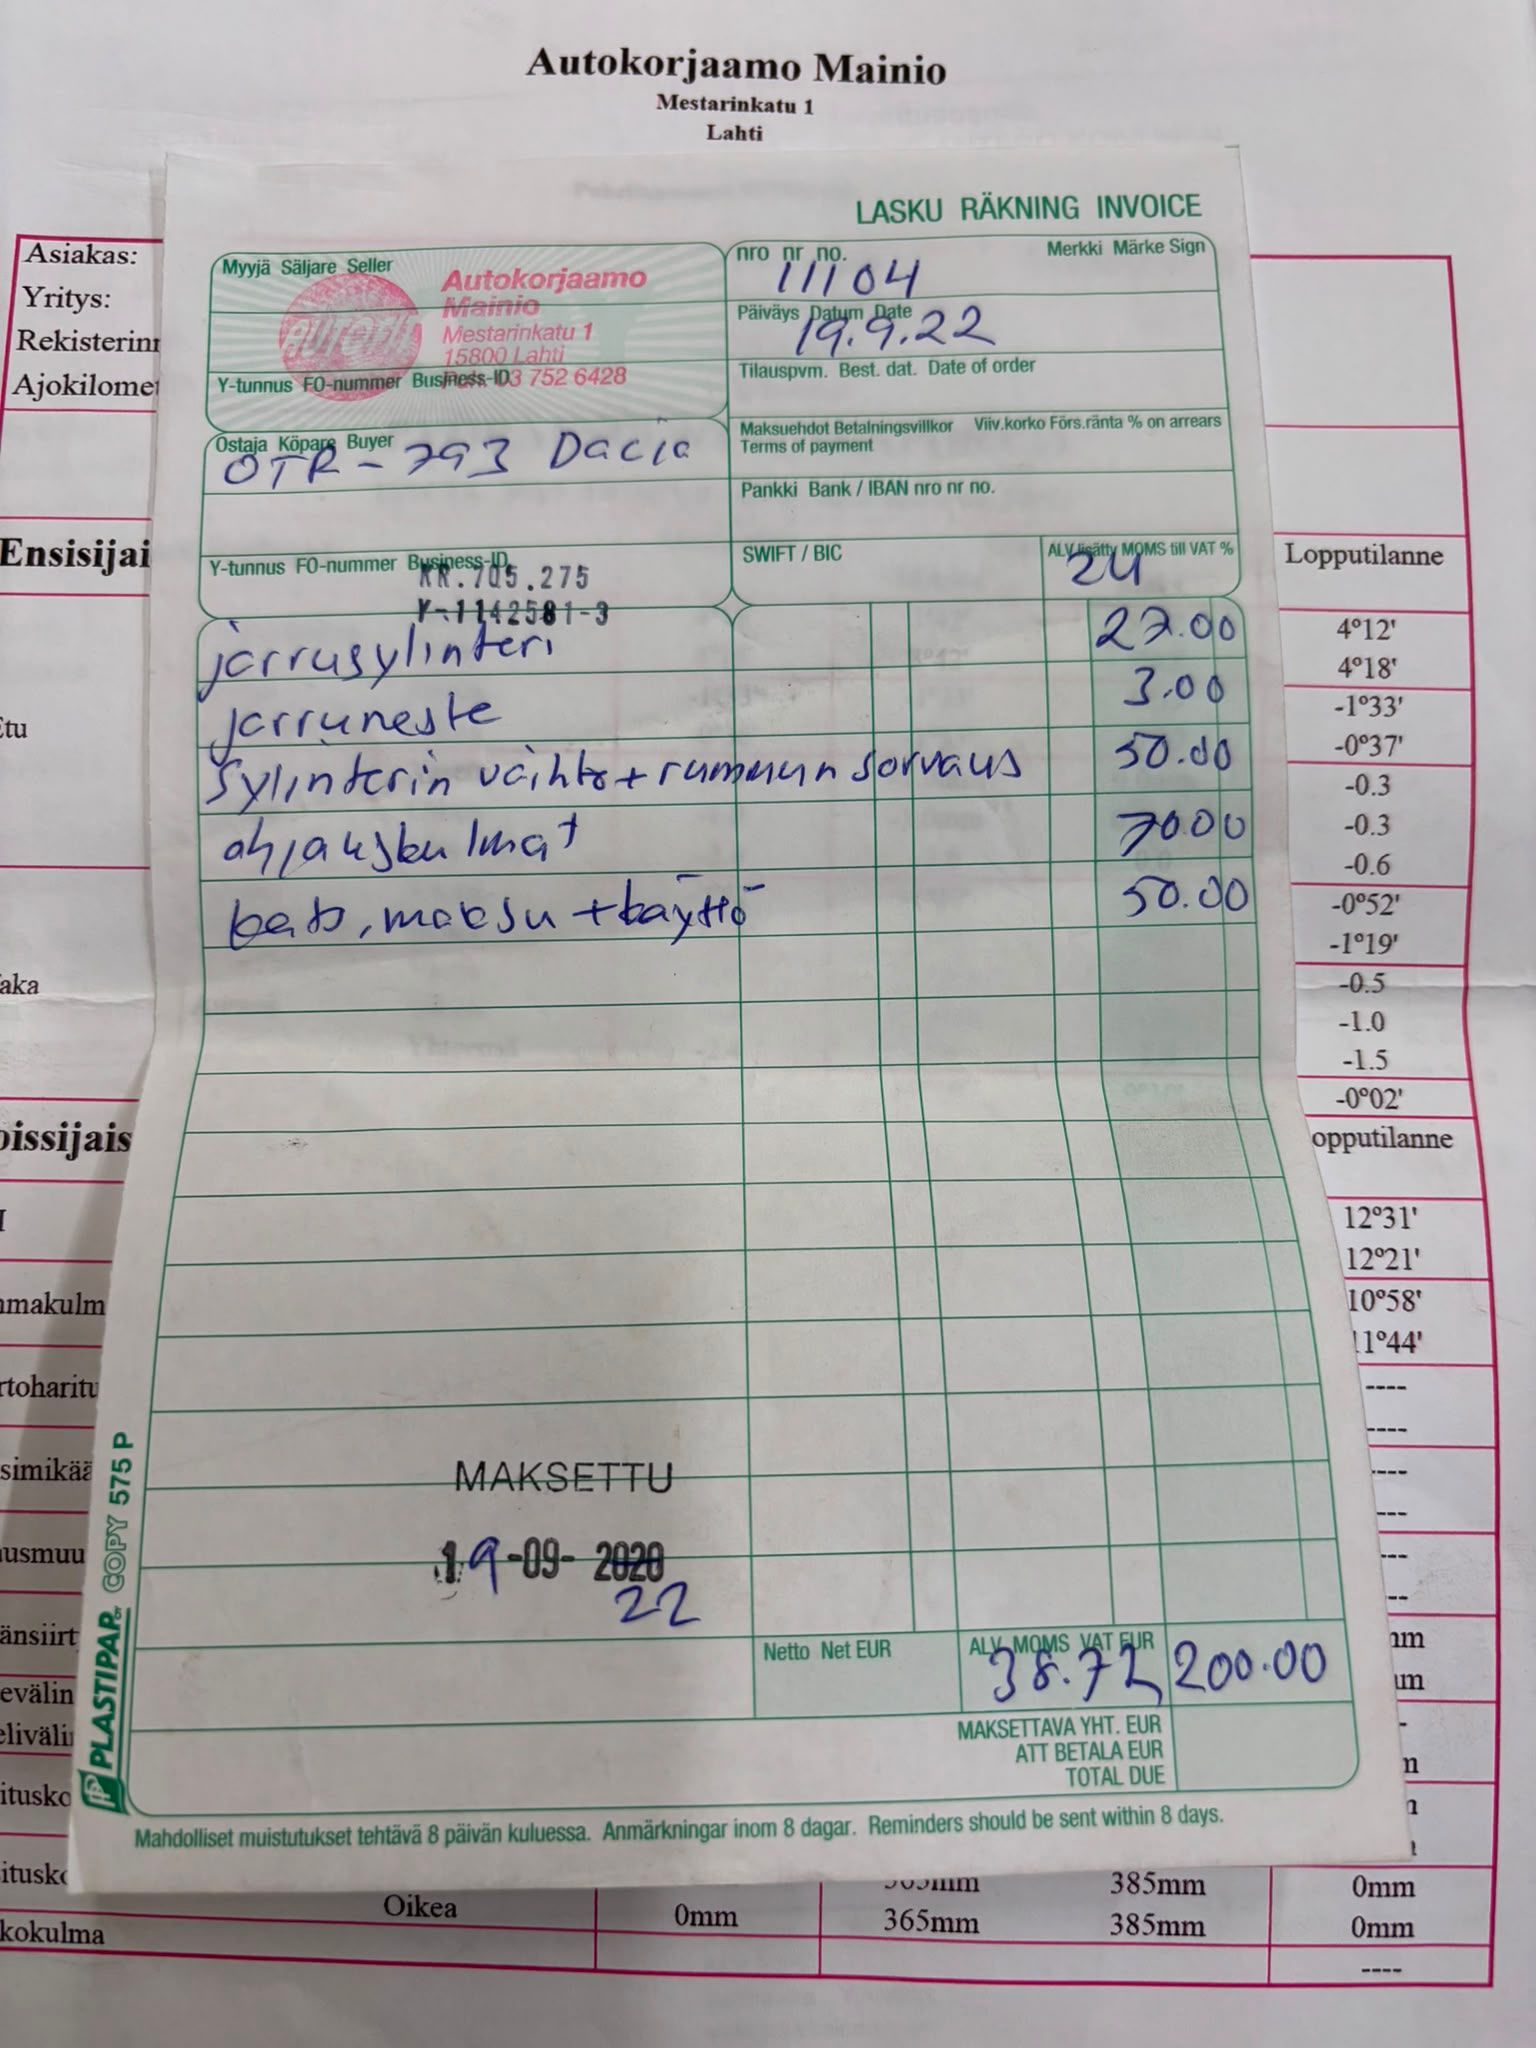 Autokorjaamo Mainio
Mestarinkatu 1
Lahti
LASKU RÄKNING INVOICE
Asiakas:
Yritys:
Rekisterinr
Ajokilomet
Myyjä Säljare Seller
Autokorjaamo
Mainio
Mestarinkatu 1
15800 Lahti
03 752 6428
Y-tunnus FO-nummer Business-ID
nro nr no.
Merkki Märke Sign
11104
Päiväys Datum Date
19.9.22
Tilauspvm. Best. dat. Date of order
Maksuehdot Betalningsvillkor Viiv.korko Förs.ränta % on arrears
Terms of payment
Pankki Bank / IBAN nro nr no.
SWIFT / BIC
ALV lisätty MOMS till VAT %
24
Ostaja Köpare Buyer
OTR-793 Dacia
Y-tunnus FO-nummer Business-ID
KR.705.275
Y-1142581-3
jarrusylinteri 27.00
jarruneste 3.00
sylinterin vaihto + rummun sorvaus 50.00
ohjauskulmat 70.00
kats, maksu + käyttö 50.00
MAKSETTU
19-09-2020
22
Netto Net EUR
ALV MOMS VAT EUR
38.72
200.00
MAKSETTAVA YHT. EUR
ATT BETALA EUR
TOTAL DUE
Mahdolliset muistutukset tehtävä 8 päivän kuluessa. Anmärkningar inom 8 dagar. Reminders should be sent within 8 days.
PLASTIPAP OY COPY 575 P
Ensisijai
Lopputilanne
4°12'
4°18'
-1°33'
-0°37'
-0.3
-0.3
-0.6
-0°52'
-1°19'
-0.5
-1.0
-1.5
-0°02'
oissijais
opputilanne
12°31'
12°21'
10°58'
11°44'
----
----
385mm 0mm
Oikea 0mm 365mm 385mm 0mm
kokulma
----